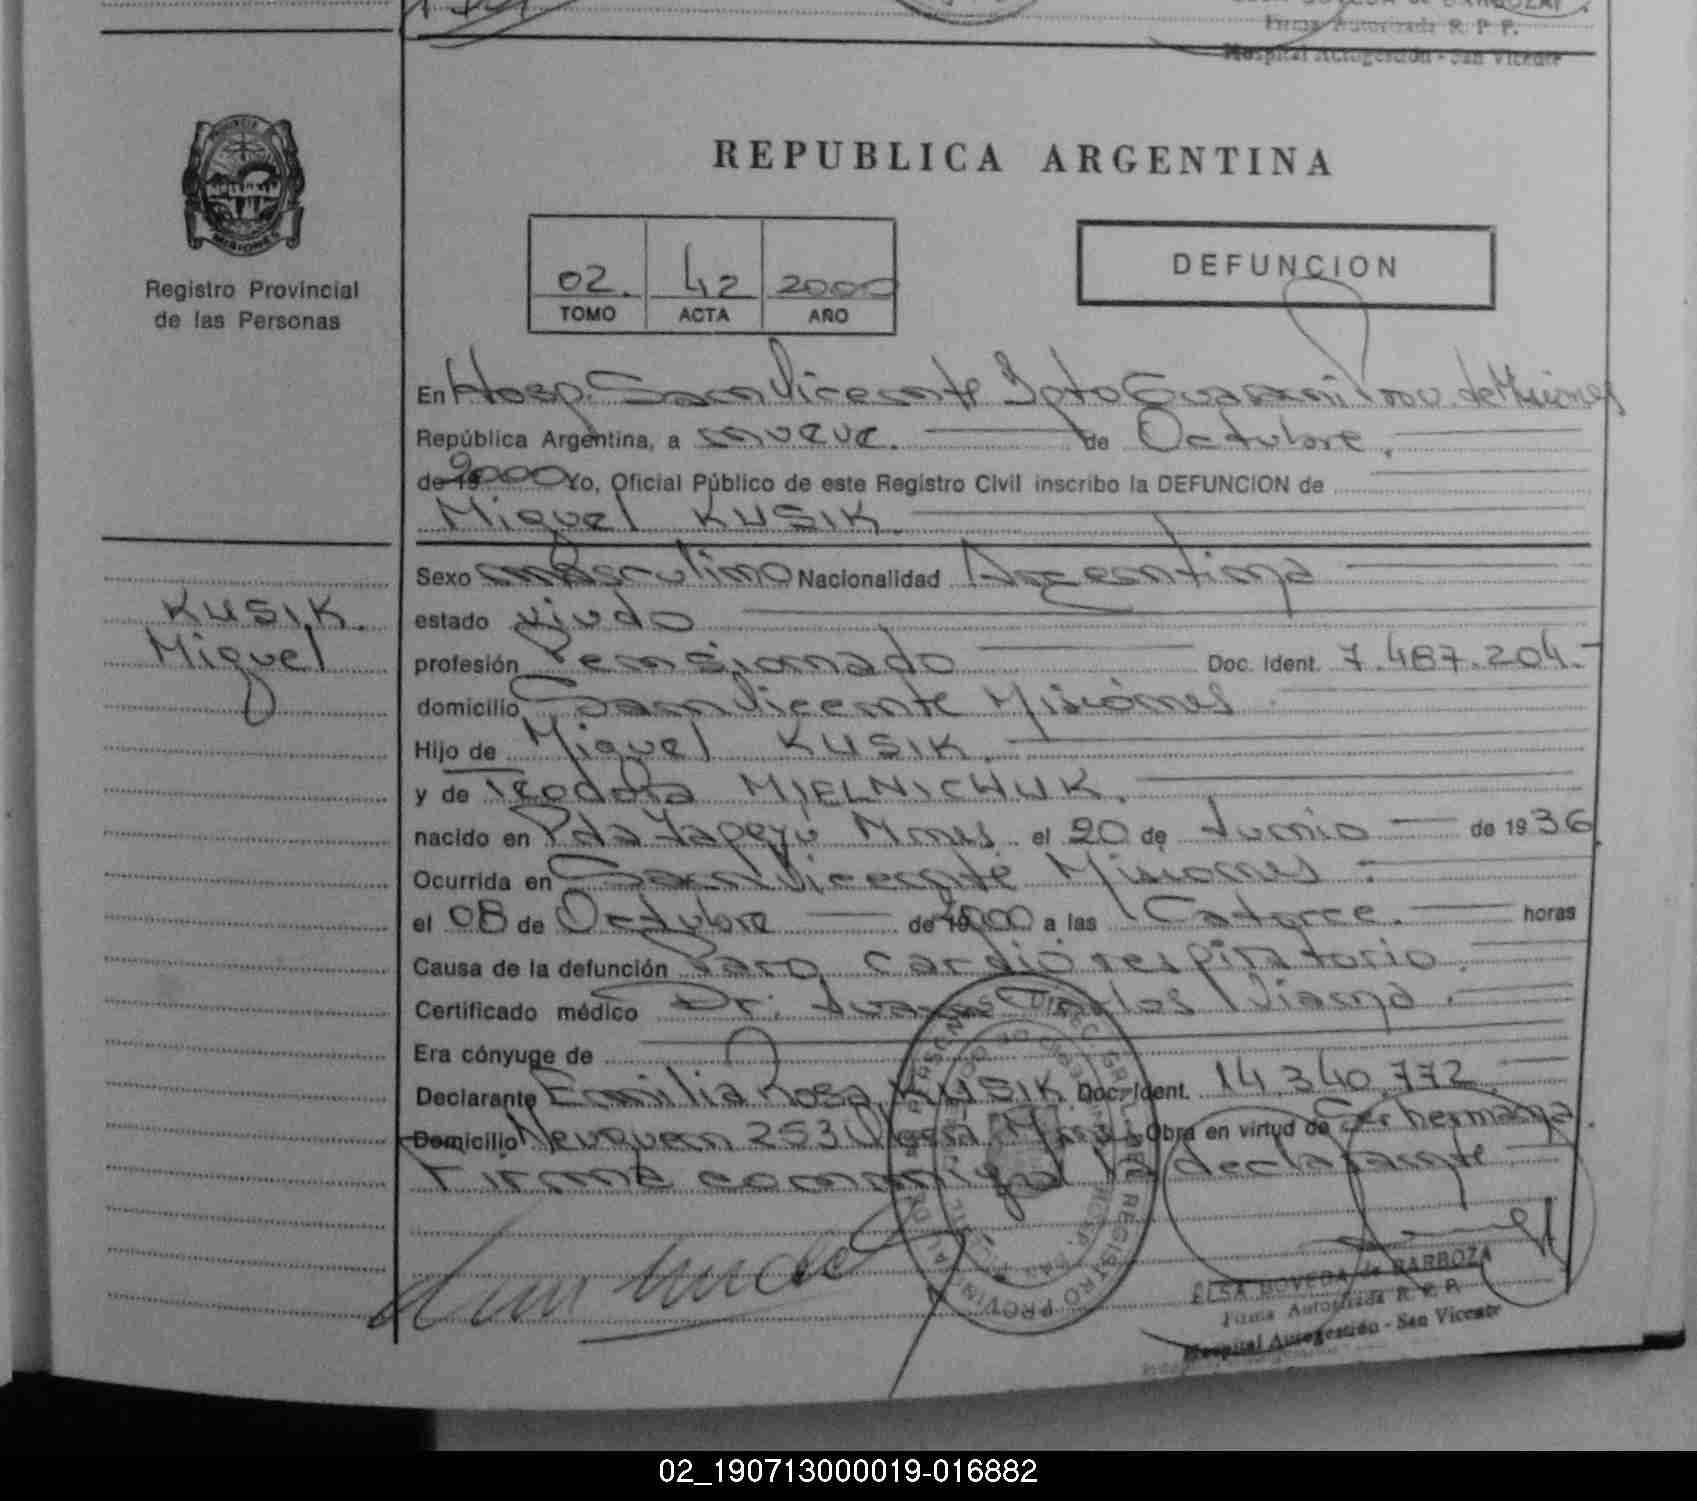 Firma Autorizada R. P. P.
Hospital Autogestión - San Vicente
PROVINCIA
MISIONES
Registro Provincial
de las Personas
REPUBLICA ARGENTINA
02. 42 2000
TOMO ACTA AÑO
DEFUNCION
En Hosp. San Vicente Dpto Guarani Prov. de Misiones
República Argentina, a nueve. de Octubre.
de 19 2000 Yo, Oficial Público de este Registro Civil inscribo la DEFUNCION de
Miguel KUSIK.
KUSIK.
Miguel
Sexo masculino Nacionalidad Argentina
estado viudo
profesión Pensionado Doc. Ident. 7.487.204.-
domicilio San Vicente Misiones
Hijo de Miguel KUSIK.
y de Teodora MIELNICHUK.
nacido en Pda Yapeyú Mnes el 20 de Junio de 19 36
Ocurrida en San Vicente Misiones
el 08 de Octubre de 19 2000 a las Catorce. horas
Causa de la defunción Paro cardiorespiratorio.
Certificado médico Dr. Juan Carlos Viana.
Era cónyuge de
Declarante Emilia Rosa KUSIK Doc. Ident. 14.340.772.
Domicilio Neuquen 253 Obra en virtud de Ser hermana.
Firma conmigo la declarante
REGISTRO PROVINCIAL DE LAS PERSONAS
ELSA BOVEDA de BARROZA
Firma Autorizada R. P. P.
Hospital Autogestión - San Vicente
02_190713000019-016882